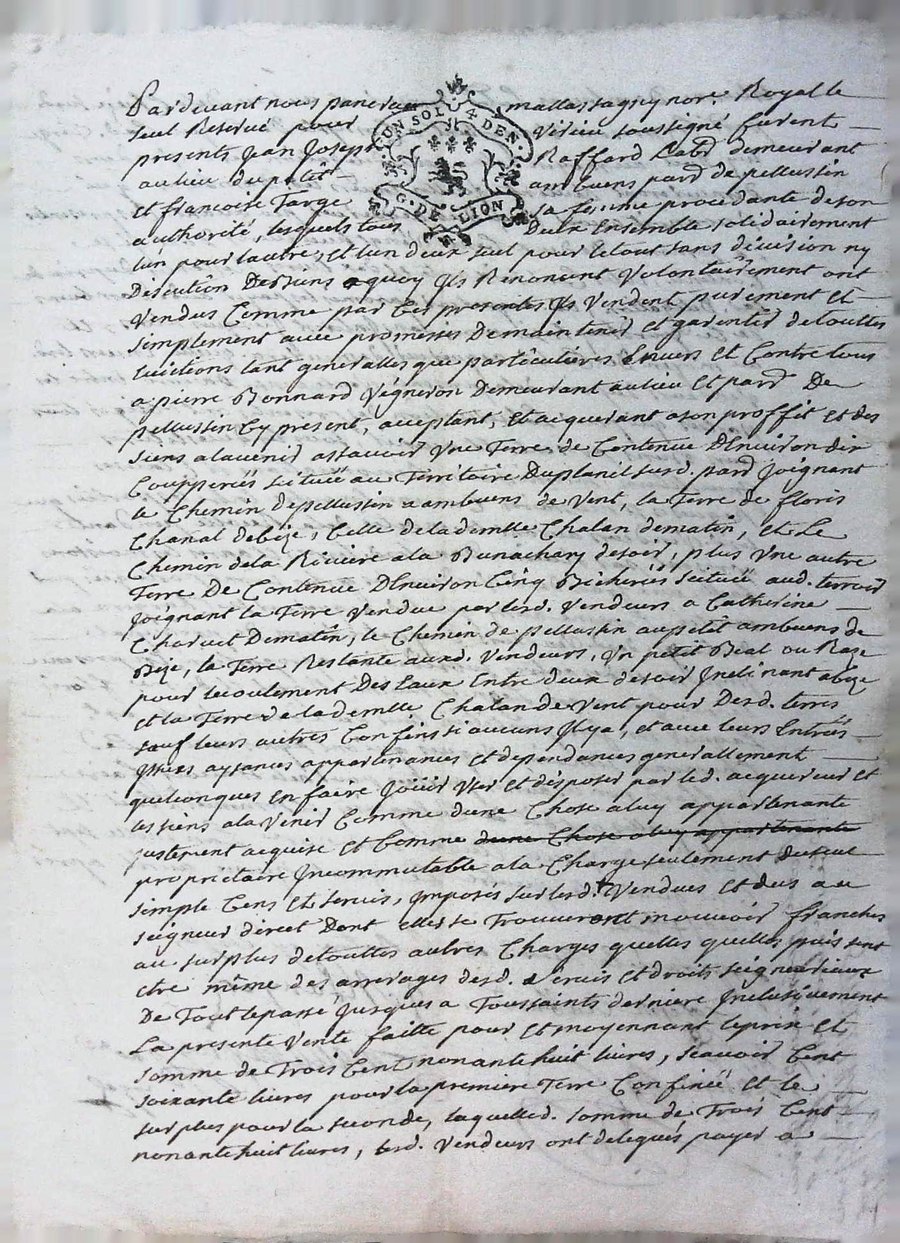 Pardevant nous pancra mallassagny nore. Royal le
seul Reservé pour Virieu soussigné furent
presents Jean Joseph Raffard Labr demeurant
au lieu du petit ambuens parse de pellussin
et francoise Targe sa femme procedante de son
authorité, lesquels tous Deux Ensemble solidairement
lun pour lautre, et lun deux seul pour le tout sans division ny
Discution Desbiens aquoy Ils Renoncent Volontairement ont
Vendus Comme par Ces presentes Ils Vendent purement et
simplement avec promesses De maintenir et garentir de touttes
evictions tant generalles que particulieres Envers et Contre tous
a pierre Bonnard Vigneron Demeurant au lieu et parse De
pellussin Cy present, acceptant, et acquerant a son proffit et des
siens a lavenir assavoir Une Terre de Contenue D'Environ dix
Coupperiés scituée au Territoire Duplanil susd. parse joignant
le Chemin de pellussin a ambuens de Vent, la Terre de floris
Chanal de bize, Celle de la demlle Chalan de matin, et Le
Chemin de la Riviere a la Bunachary de soir, plus Une autre
Terre De Contenue D'Environ Cinq Bicherés scituée aud. terroir
Joignant la Terre Vendue par lesd. Vendeurs a Catherine
Charvet De matin, le Chemin de pellussin au petit ambuens de
Bize, la Terre Restante auxd. Vendeurs, Un petit Beal ou Rase
pour lecoulement Des Eaux Entre deux de soir Inclinant a bize
et la Terre de la demlle Chalan de Vent pour Desd. terres
sauf leurs autres Confins si aucuns Il y a, et avec leurs Entrées
Issues aysances appartenances et dependances generallement
quelconques En faire Jouir User et disposer par led. acquereur et
les siens a la Venir Comme dune Chose a luy appartenante
justement acquise et Comme dune Chose a luy appartenante
proprietaire Incommutable a la Charge seulement du seul
simple Cens et servis, Imposés sur lesd. Vendues et dus au
seigneur direct Dont elles se Trouveront mouvoir franches
au surplus de touttes autres Charges quelles quelles puissent
etre même des arrerages desd. servis et droits seigneuriaux
De Tout le passé Jusques a Toussaints derniere Inclusivement
La presente Vente faitte pour et moyennant le prix et
somme de Trois Cent nonante huit livres, scavoir Cent
soixante livres pour la premiere Terre Confinée et le
surplus pour la seconde, laquelled. somme de Trois Cent
nonante huit livres, lesd. Vendeurs ont delegués payer a
UN SOL 4 DEN.
G. DE LION